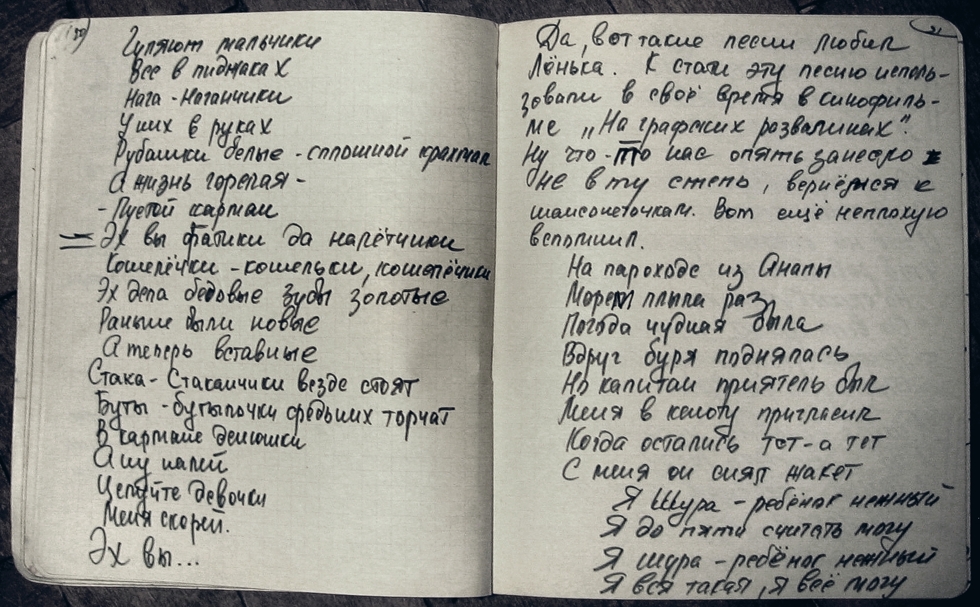 30
Гуляют мальчики
Все в пиджаках
Нага - Наганчики
У них в руках
Рубашки белые - сплошной крахмал
А жизнь горелая -
- Пустой карман
Эх вы фатики да налётчики
Кошелёчки - кошельки, кошелёчики
Эх дела бедовые зубы золотые
Раньше были новые
А теперь вставные
Стака - Стаканчики везде стоят
Буты - бутылочки средь них торчат
В кармане денюшки
А ну налей
Целуйте девочки
Меня скорей.
Эх вы...
31
Да, вот такие песни любил
Лёнька. К стати эту песню исполь-
зовали в своё время в кинофиль-
ме „На графских развалинах".
Ну что-то нас опять занесло
не в ту степь, вернёмся к
шансонеточкам. Вот ещё неплохую
вспомнил.
На пароходе из Анапы
Морем плыла раз
Погода чудная была
Вдруг буря поднялась
Но капитан приятель был
Меня в каюту пригласил
Когда остались тот-а тет
С меня он снял жакет
Я Шура - ребёнок нежный
Я до пяти считать могу
Я шура - ребёнок нежный
Я вся такая, я всё могу